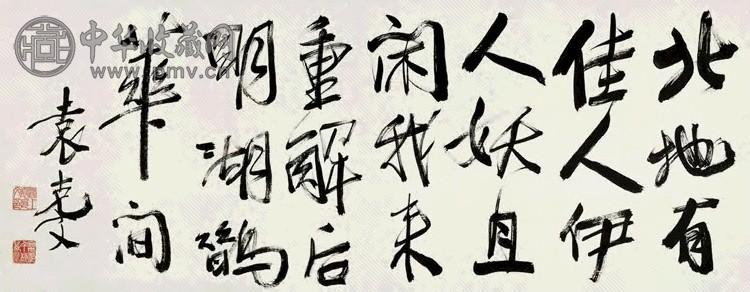 北地有
佳人伊
人妖且
闲我来
重解后
明湖鹊
華间
袁克文
中华收藏网
www.pmv.cn